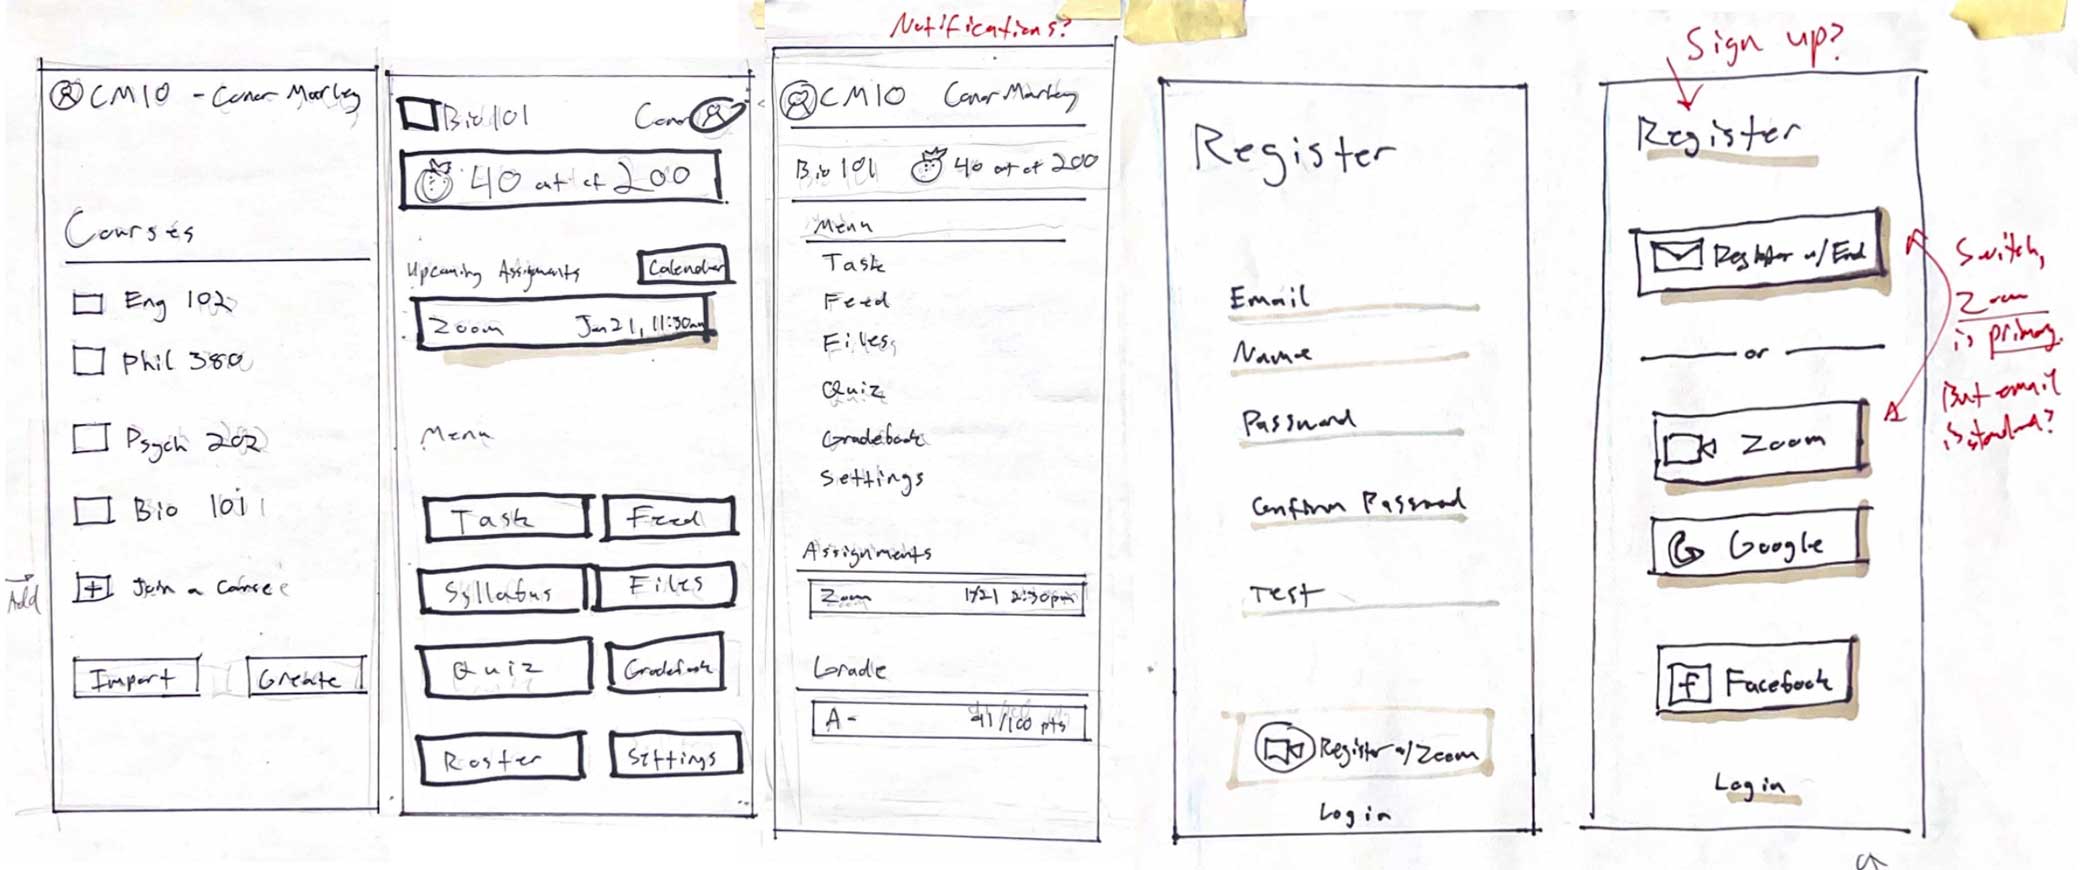 Notifications?
CM10 - Conor Morley
Courses
Eng 102
Phil 380
Psych 202
Bio 101
Add
Join a course
Import
Create
Bio 101
Conor
40 out of 200
Upcoming Assignments
Calendar
Zoom
Jan 21, 11:30am
Menu
Task
Feed
Syllabus
Files
Quiz
Gradebook
Roster
Settings
CM10
Conor Morley
Bio 101
40 out of 200
Menu
Task
Feed
Files
Quiz
Gradebook
Settings
Assignments
Zoom
1/21 2:30pm
Grade
A-
91/100 pts
Register
Email
Name
Password
Confirm Password
Test
Register w/Zoom
Login
Sign up?
Register
Register w/
or
Zoom
Google
f Facebook
Login
Switch,
Zoom
is primary.
But email
is standard?